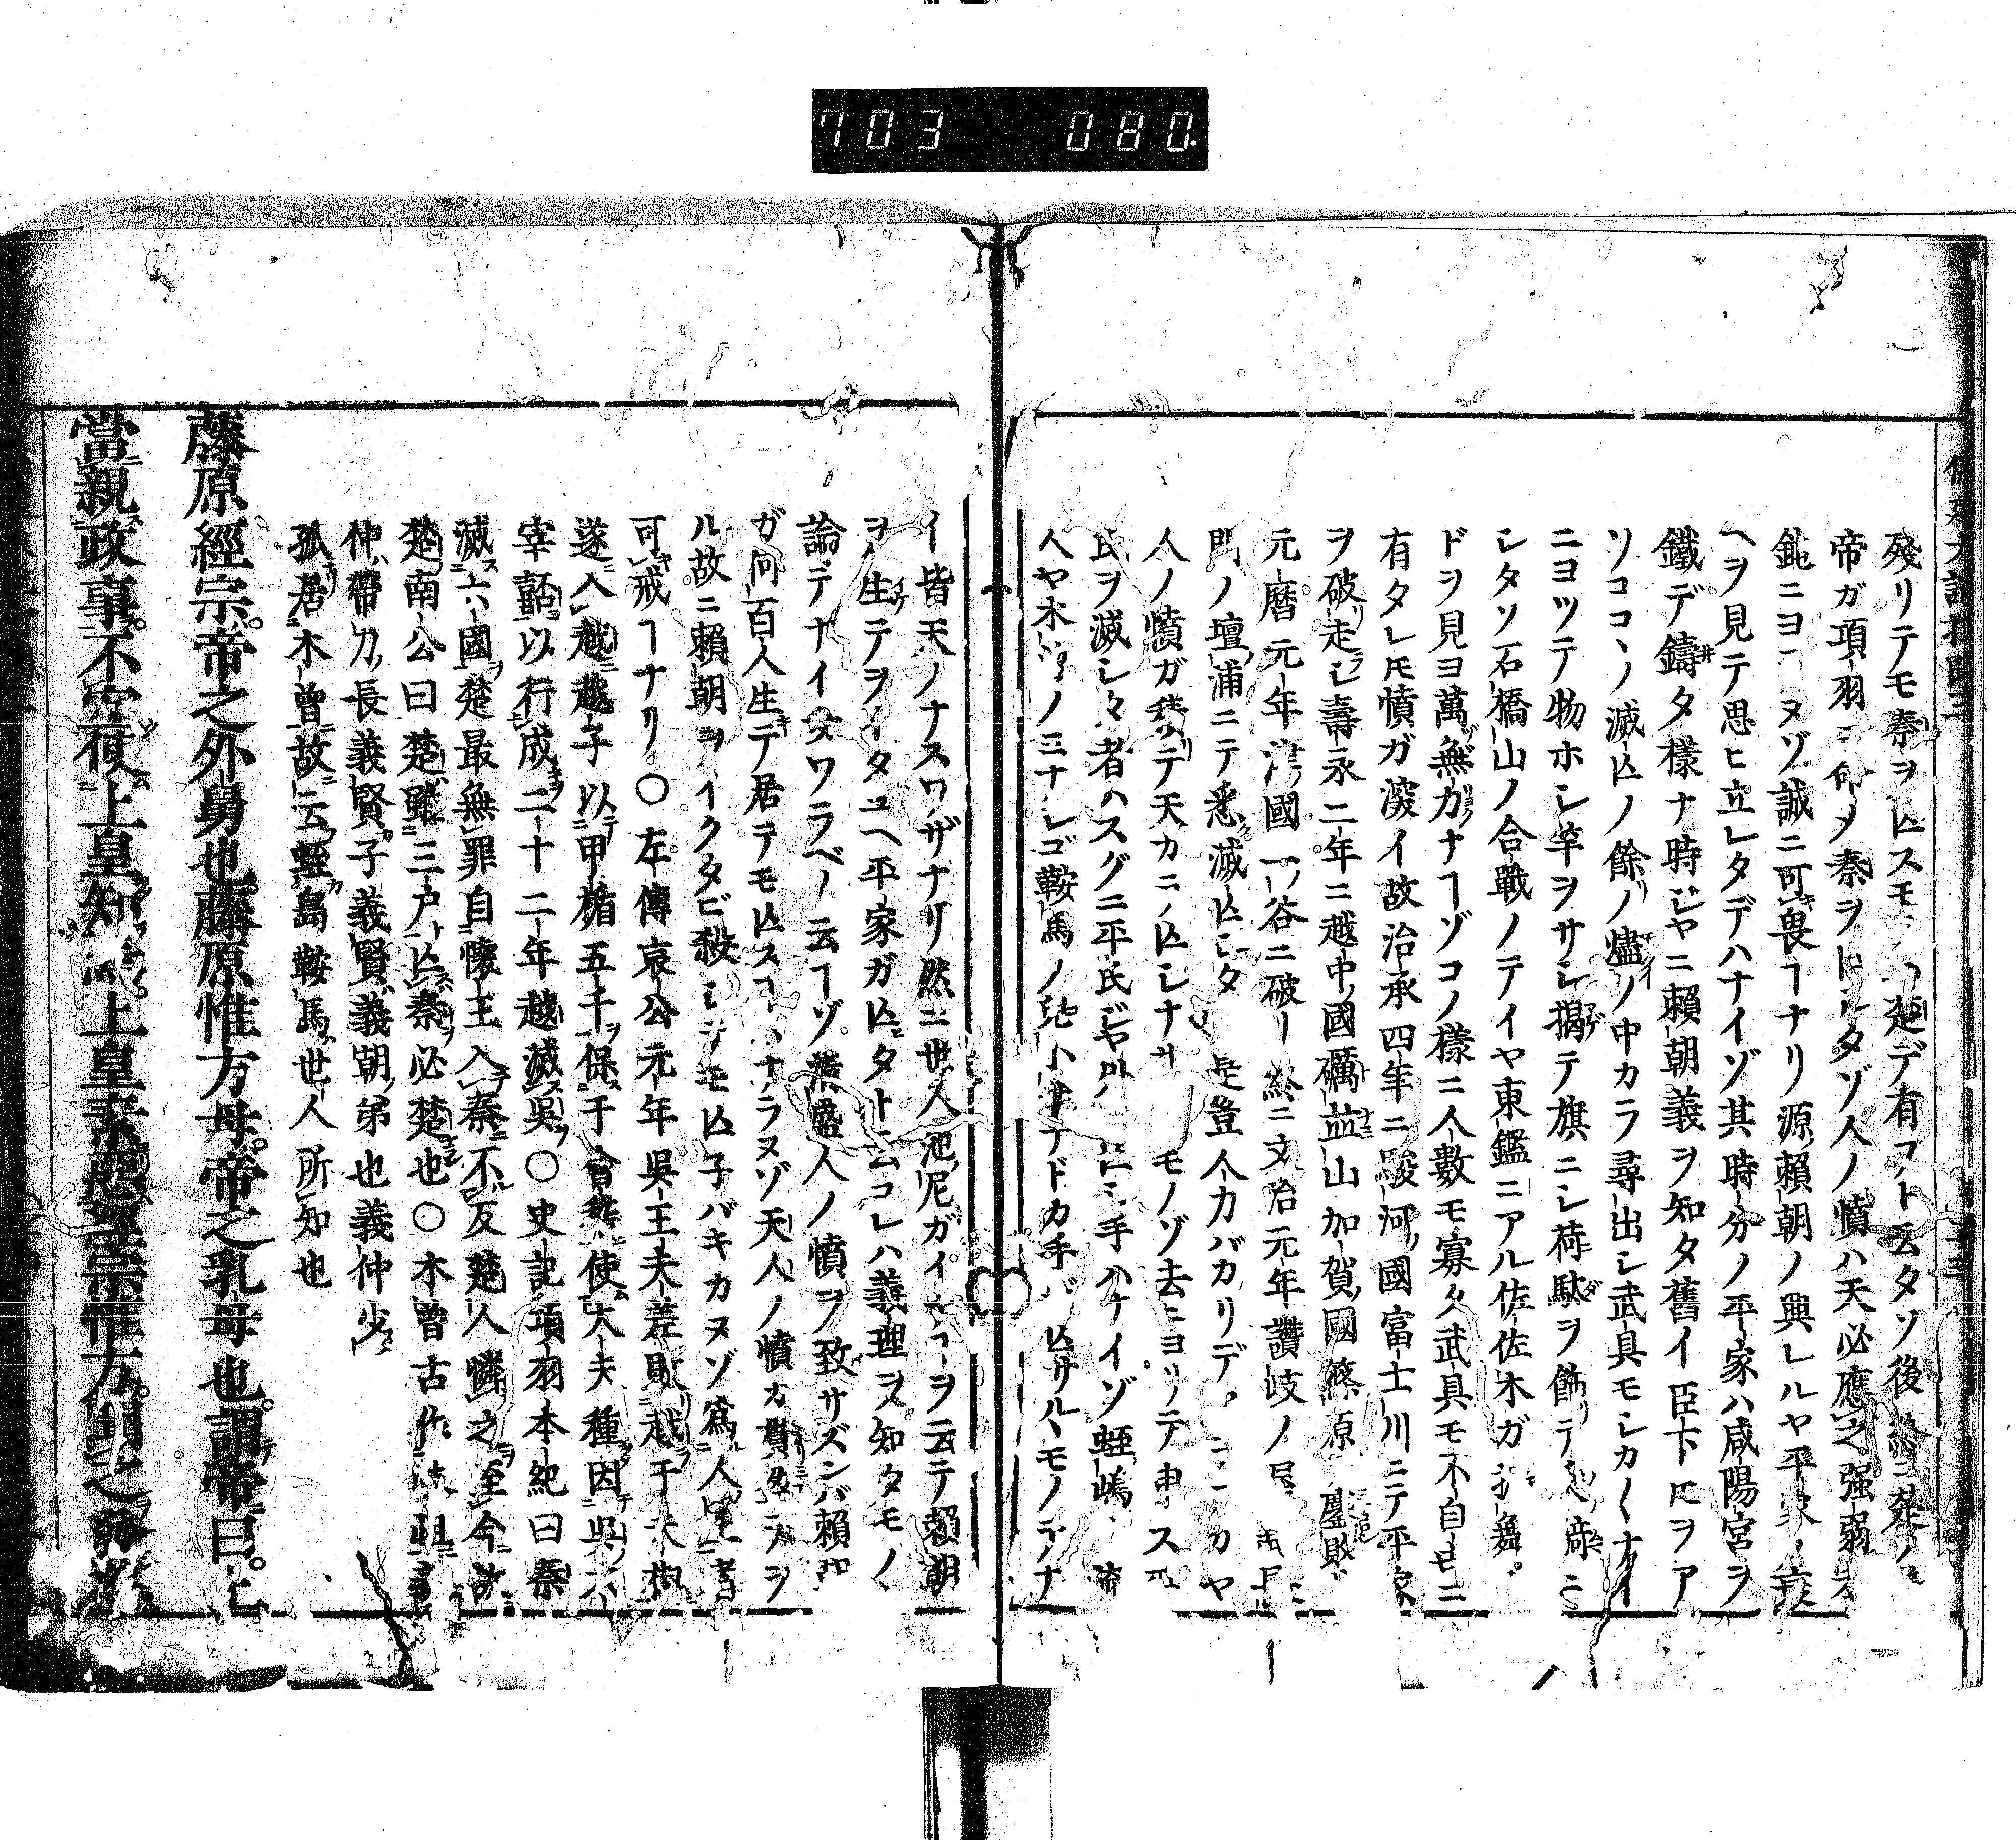 703 080
殘リテモ秦ヲ亡スモ 楚デ有フト云タソ後終ニ楚ノ
帝ガ項羽ニ命メ秦ヲ亡シタゾ人ノ憤ハ天必應之强弱
鈍ニヨラヌゾ誠ニ可畏ヿナリ源頼朝ノ興レルヤ平家ノ
ヘヲ見テ思ヒ立レタデハナイゾ其時分ノ平家ハ咸陽宮ヲ
鐵デ鑄タ樣ナ時ジヤニ頼朝義ヲ知タ舊イ臣下𪜈ヲア
ソコココノ滅亡ノ餘ノ燼ノ中カラ尋出シ武具モシカ〱ナイ
ニヨツテ物ホシ竿ヲサシ揚テ旗ニシ荷駄ヲ餝テ
シタソ石橋山ノ合戰ノテイヤ東鑑ニアル佐佐木ガ 舞
ドヲ見ヨ萬無力ナヿゾコノ樣ニ人數モ寡ク武具モ不自由ニ
有タレ𪜈憤ガ深イ故治承四年ニ駿河國富士川ニテ平家
ヲ破走シ壽永二年ニ越中國礪並山加賀國篠原ニ鏖敗
元曆元年津國一ノ谷ニ破リ終ニ文治元年讚岐ノ
門ノ壇浦ニテ悉滅亡シタ 是豈人力バカリデ カヤ
人ノ憤ガ積テ天カラ亡シナサ モノゾ去ニヨツテ申ス
氏ヲ滅シタ者ハスグニ平氏ジヤ 手ハナイゾ蛭嶋 流
人ヤ木曾ノミナシゴ鞍馬ノ兒小僧ナドカ手デ亡サルヽモノテナ
イ皆天ノナスワザナリ然ニ世人池尼ガイヽヿヲ云テ頼朝
ヲ生テヲイタユヘ平家ガ亡タト云コレハ義理ヲ知タモノ
論デナイ女ワラベノ云ヿゾ清盛人ノ憤ヲ致サズンバ頼朝
ガ何百人生テ居テモ亡スヿハナラヌゾ天人ノ憤カ
ル故ニ頼朝ヲイクタビ殺シテモ亡子バキカヌゾ爲人 者
可戒ヿナリ○左傳哀公元年吳王夫差敗越于夫椒
遂入越越子以甲楯五千保于會稽使大夫種因吳
宰嚭以行成二十二年越滅吳○史記項羽本紀曰秦
滅六國楚最無罪自懷王入秦不反楚人憐之至今故
楚南公曰楚雖三戸亡秦必楚也○木曾古作
仲帶刀長義賢子義賢義朝弟也義仲少
孤居木曾故云蛭島鞍馬世人所知也
藤原經宗帝之外舅也藤原惟方母帝之乳母也謂帝曰
當親政事不宜使上皇知 上皇素惡經宗惟方聞之